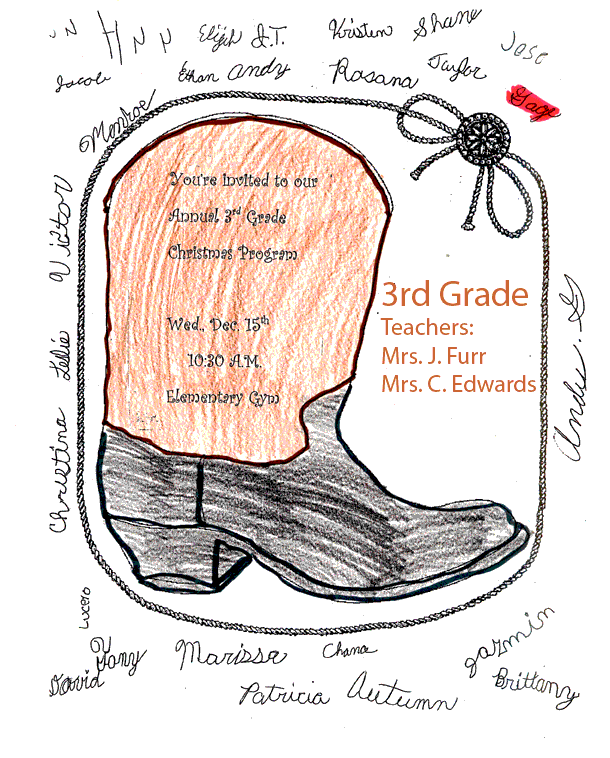 Elijih J.T. Kristen Shane
Jose
Jacob Ethan Andy Rosana Taylor
Gage
Monroe
Victor
Leslie
Christina
You're invited to our
Annual 3rd Grade
Christmas Program
Wed., Dec. 15th
10:30 A.M.
Elementary Gym
3rd Grade
Teachers:
Mrs. J. Furr
Mrs. C. Edwards
Andes. G
Lucero
David Tony Marissa Chana Jazmin
Brittany
Patricia Autumn